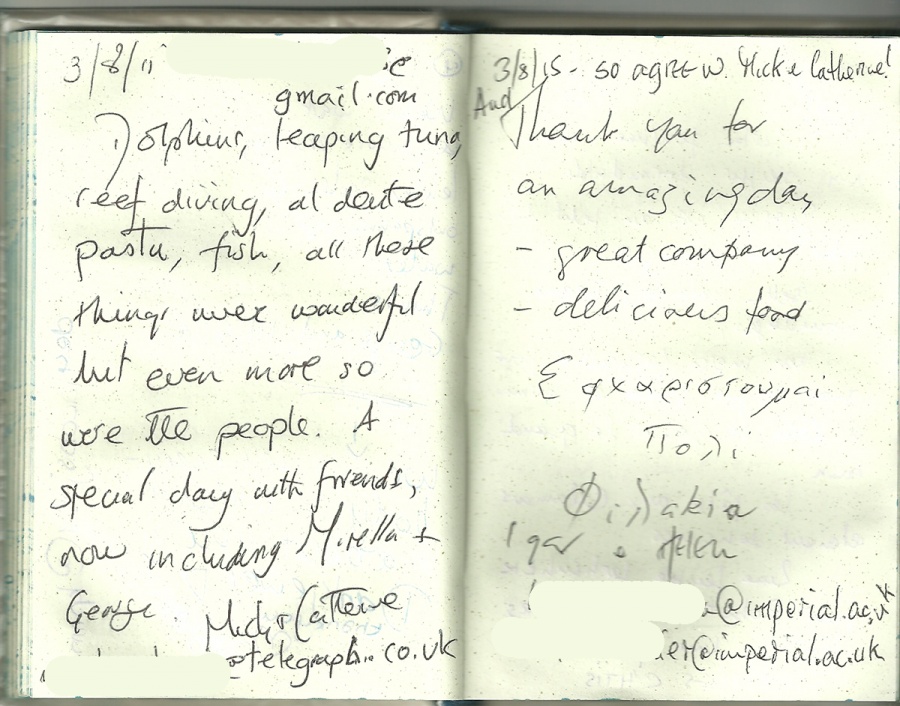 3/8/
gmail.com
Dolphins, leaping tuna,
reef diving, al dente
pasta, fish, all these
things were wonderful
but even more so
were the people. A
special day with friends,
now including Mirella +
George
Mick & Catherine
@telegraph.co.uk
3/8/15 - so agree w. Mick & Catherine!
And
Thank you for
an amazing day
- great company
- delicious food
Εφχαριστουμαι
Πολι
Φιλακια
Igor & Helen
@imperial.ac.uk
ier@imperial.ac.uk